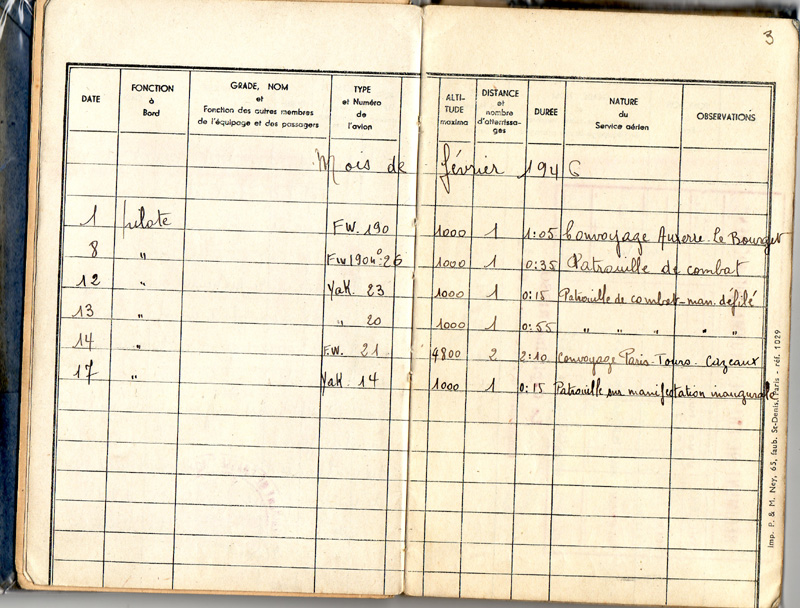 3
DATE FONCTION à Bord GRADE, NOM et Fonction des autres membres de l'équipage et des passagers TYPE et Numéro de l'avion ALTI-TUDE maxima DISTANCE et nombre d'atterrissa-gés DURÉE NATURE du Service aérien OBSERVATIONS
Mois de février 1946
1 pilote F.W. 190 1000 1 1:05 Convoyage Auxerre. Le Bourget
8 " FW190 n°: 26 1000 1 0:35 Patrouille de combat
12 " Yak. 23 1000 1 0:15 Patrouille de combat - man. défilé
13 " " 20 1000 1 0:55 " " " " "
14 " F.W. 21 4800 2 2:10 Convoyage Paris-Tours-Cazeaux
17 " Yak. 14 1000 1 0:15 Patrouille sur manifestation inaugurale
Imp. P. & M. Ney, 65, faub. St-Denis, Paris - réf. 1029